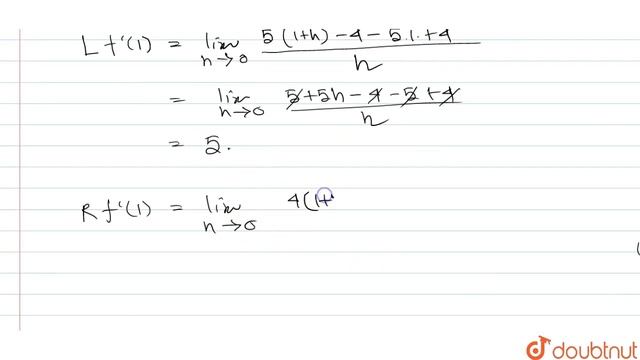 L f'(1) = lim h→0 5(1+h) - 4 - 5.1. + 4 / h
= lim h→0 5 + 5h - 4 - 5 + 4 / h
= 5.
R f'(1) = lim h→0 4(1+
doubtnut